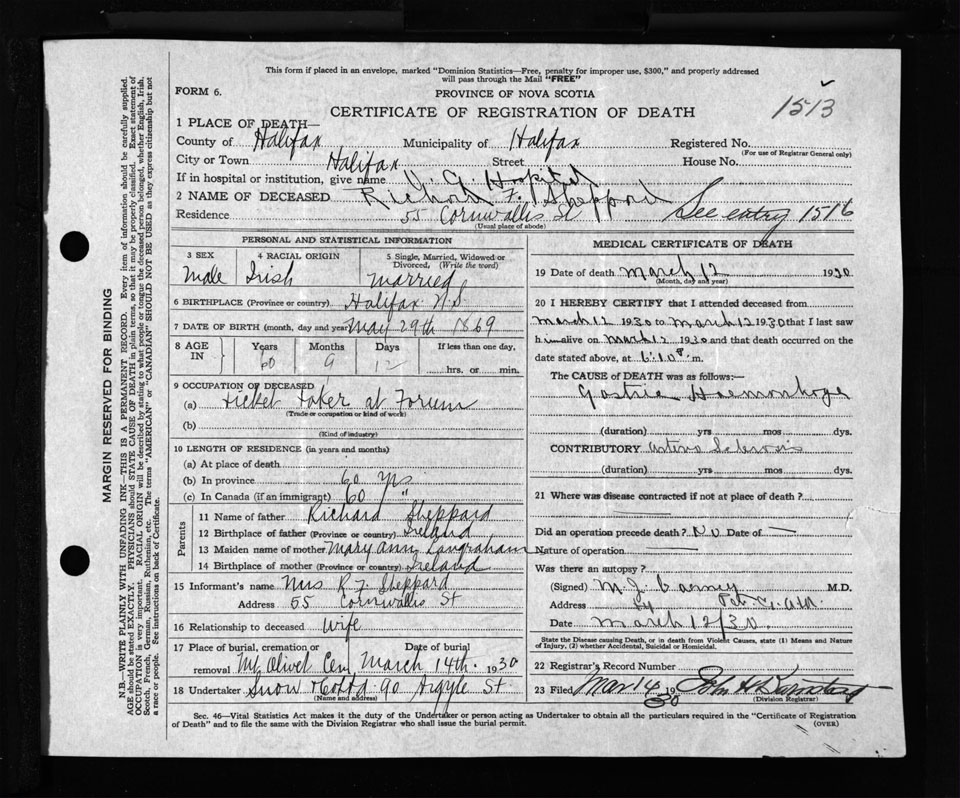 This form if placed in an envelope, marked "Dominion Statistics—Free, penalty for improper use, $300," and properly addressed
will pass through the Mail "FREE"
FORM 6.
PROVINCE OF NOVA SCOTIA
1513
CERTIFICATE OF REGISTRATION OF DEATH
1 PLACE OF DEATH—
County of Halifax Municipality of Halifax Registered No.
(For use of Registrar General only)
City or Town Halifax Street House No.
If in hospital or institution, give name V. G. Hospital
2 NAME OF DECEASED Richard F. Sheppard
See entry 1516
Residence 55 Cornwallis St
(Usual place of abode)
PERSONAL AND STATISTICAL INFORMATION
3 SEX 4 RACIAL ORIGIN 5 Single, Married, Widowed or
Divorced, (Write the word)
Male Irish Married
6 BIRTHPLACE (Province or country) Halifax N.S.
7 DATE OF BIRTH (month, day and year) May 29th 1869
8 AGE IN Years Months Days If less than one day,
60 9 hrs. or min.
9 OCCUPATION OF DECEASED
(a) Ticket Taker at Forum
(Trade or occupation or kind of work)
(b)
(Kind of industry)
10 LENGTH OF RESIDENCE (in years and months)
(a) At place of death
(b) In province 60 yrs
(c) In Canada (if an immigrant) 60 "
Parents
11 Name of father Richard Sheppard
12 Birthplace of father (Province or country) Ireland
13 Maiden name of mother Mary Ann
14 Birthplace of mother (Province or country) Ireland
15 Informant's name Mrs R. F. Sheppard
Address 55 Cornwallis St
16 Relationship to deceased Wife
17 Place of burial, cremation or Date of burial
removal Mt Olivet Cem March 14th 1930
18 Undertaker Snow & Co Ltd 90 Argyle St
(Name and address)
MEDICAL CERTIFICATE OF DEATH
19 Date of death March 12 1930
(Month, day and year)
20 I HEREBY CERTIFY that I attended deceased from
March 12 1930 to March 12 1930 that I last saw
him alive on March 12 1930 and that death occurred on the
date stated above, at 6:10 m.
The CAUSE of DEATH was as follows:—
Gastric Haemorrhage
(duration) yrs mos dys.
CONTRIBUTORY Arterio Sclerosis
(duration) yrs mos dys.
21 Where was disease contracted if not at place of death?
Did an operation precede death? No Date of —
Nature of operation —
Was there an autopsy?
(Signed) M. J. Carney M.D.
Address
Date March 12/30.
State the Disease causing Death, or in death from Violent Causes, state (1) Means and Nature
of Injury, (2) whether Accidental, Suicidal or Homicidal.
22 Registrar's Record Number
23 Filed Mar 14 1930 John H
(Division Registrar)
Sec. 46—Vital Statistics Act makes it the duty of the Undertaker or person acting as Undertaker to obtain all the particulars required in the "Certificate of Registration
of Death" and to file the same with the Division Registrar who shall issue the burial permit.
(OVER)
MARGIN RESERVED FOR BINDING
N.B.—WRITE PLAINLY WITH UNFADING INK—THIS IS A PERMANENT RECORD. Every item of information should be carefully supplied.
AGE should be stated EXACTLY. PHYSICIANS should STATE CAUSE OF DEATH in plain terms, so that it may be properly classified. Exact statement of
OCCUPATION is very important. RACIAL ORIGIN will be described by stating to what people or tongue the deceased person belonged, whether English, Irish,
Scotch, French, German, Russian, Ruthenian, etc. The terms "AMERICAN" or "CANADIAN" SHOULD NOT BE USED as they express citizenship but not
a race or people. See instructions on back of Certificate.